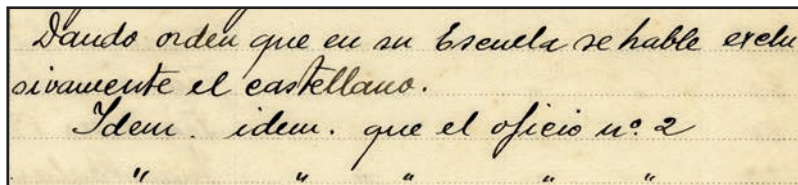 Dando orden que en su Escuela se hable exclu
sivamente el castellano.
Idem. idem. que el oficio nº. 2
" " " " "